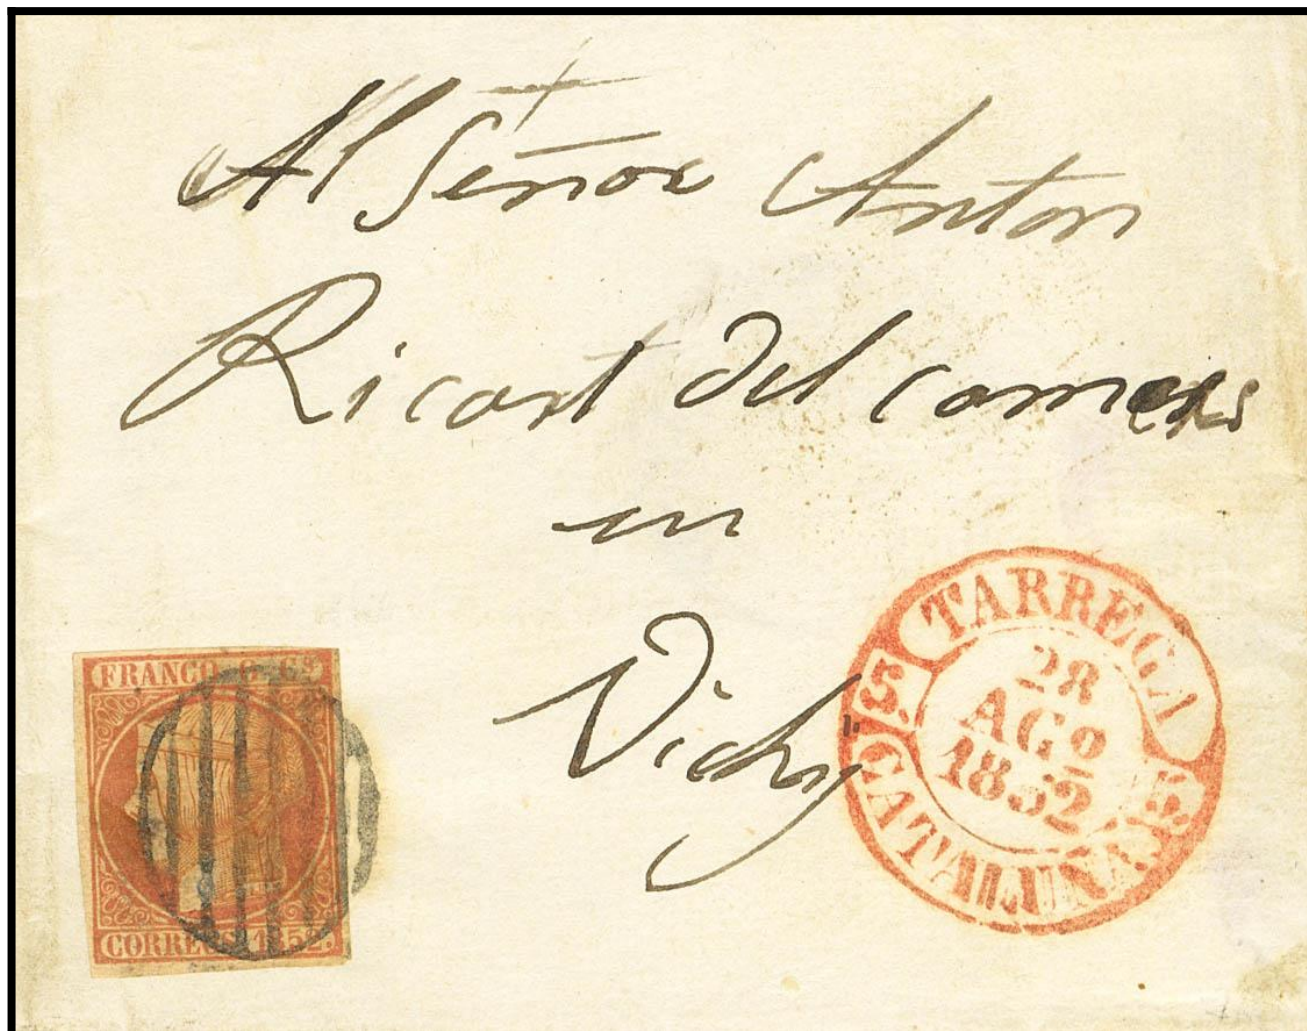 Al Señor Anton
Ricart del
en
Vichy
FRANCO 6 Cs.
CORREOS 1852.
TARREGA
28
AGO
1852
CATALUÑA